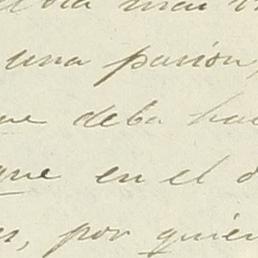 una pasión,
ue deba ha
que en el d
por quien